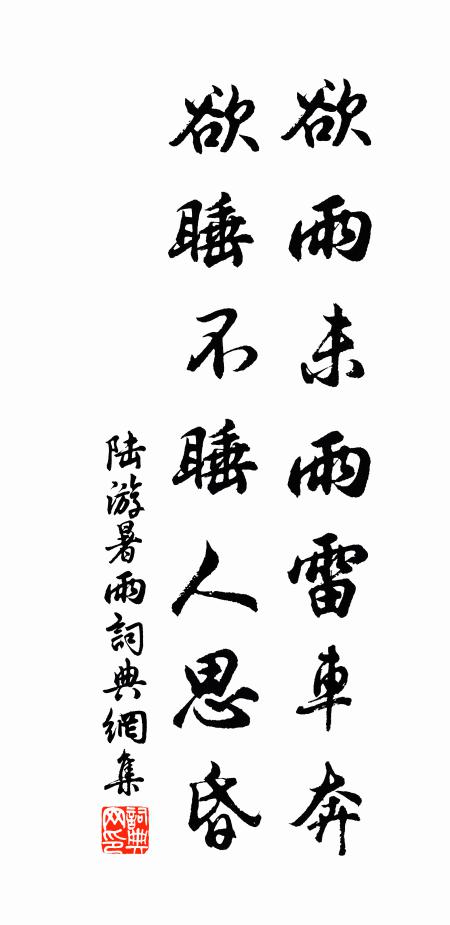 欲雨未雨雷車奔
欲睡不睡人思昏
陸游暑雨詞典網集
詞典网印